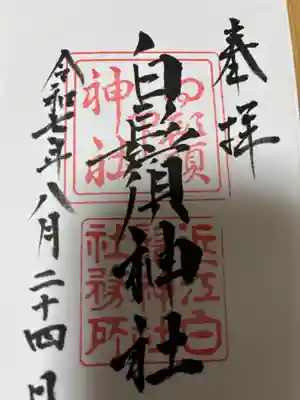 奉拝
白鬚神社
令和七年八月二十四日
白鬚神社
近江白鬚神社社務所